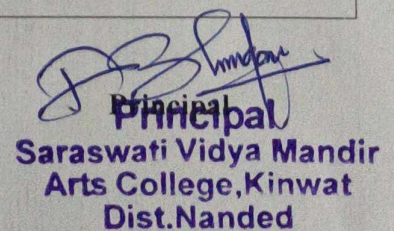 Principal
Principal
Saraswati Vidya Mandir
Arts College,Kinwat
Dist.Nanded